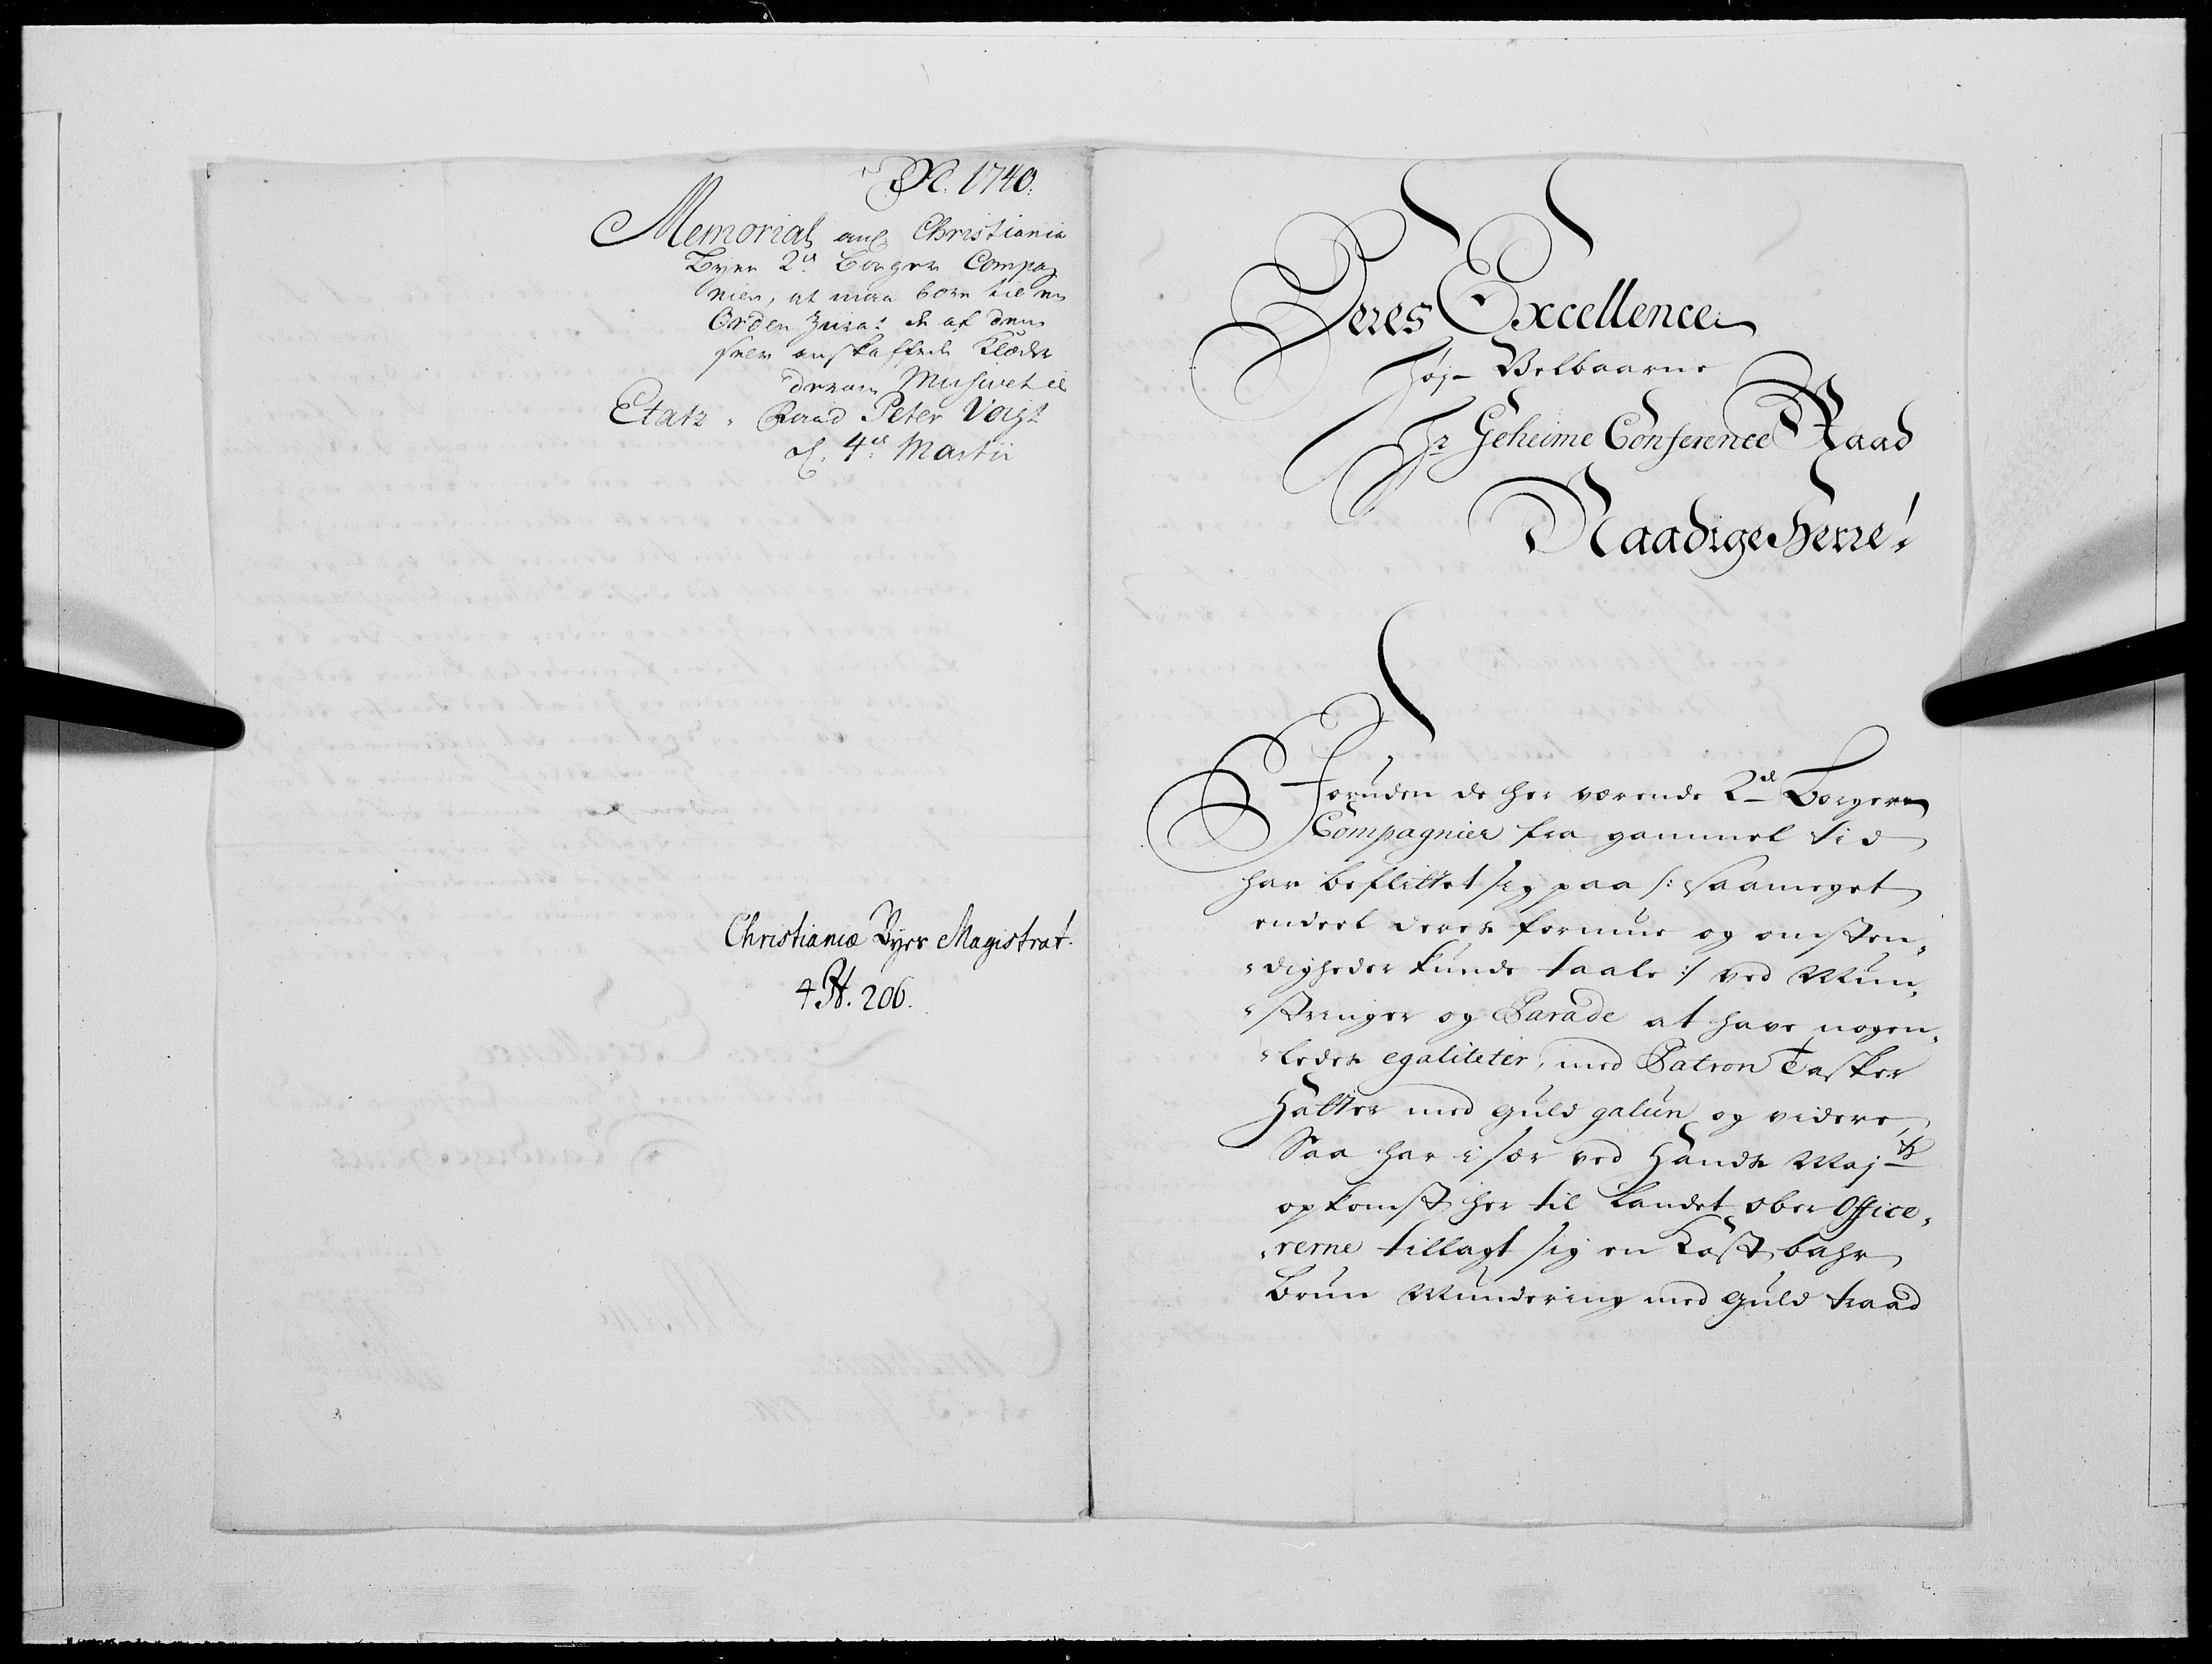 1740.
Memorial ang: Christiania
Byes 2de Borger Compag
nier, at maa bære til en
Orden Zirat de af dem
selv anskaffede Klæder
Etatz-Raad Peter Voigt
4de Martii
Christianiæ Byes Magistrat.
4 N. 206.
Deres Excellence
Høj-Velbaarne
Hr Geheime Conference Raad
Naadige Herre!
Foruden de her værende 2de Borger
Compagnier fra gammel tid
har beflittet sig paa /: saameget
endeel deres formue og omsten-
-digheder kunde taale :/ ved Mun-
-stringer og Parade at have nogen-
-ledes egaliteter, med Patron Tasker
Hatter med guld galun og videre,
Saa har i sær ved Hands Mayts
opkomst her til Landet ober Office-
-rerne tillagt sig en Kostbahr
brun Mundering med guld traad